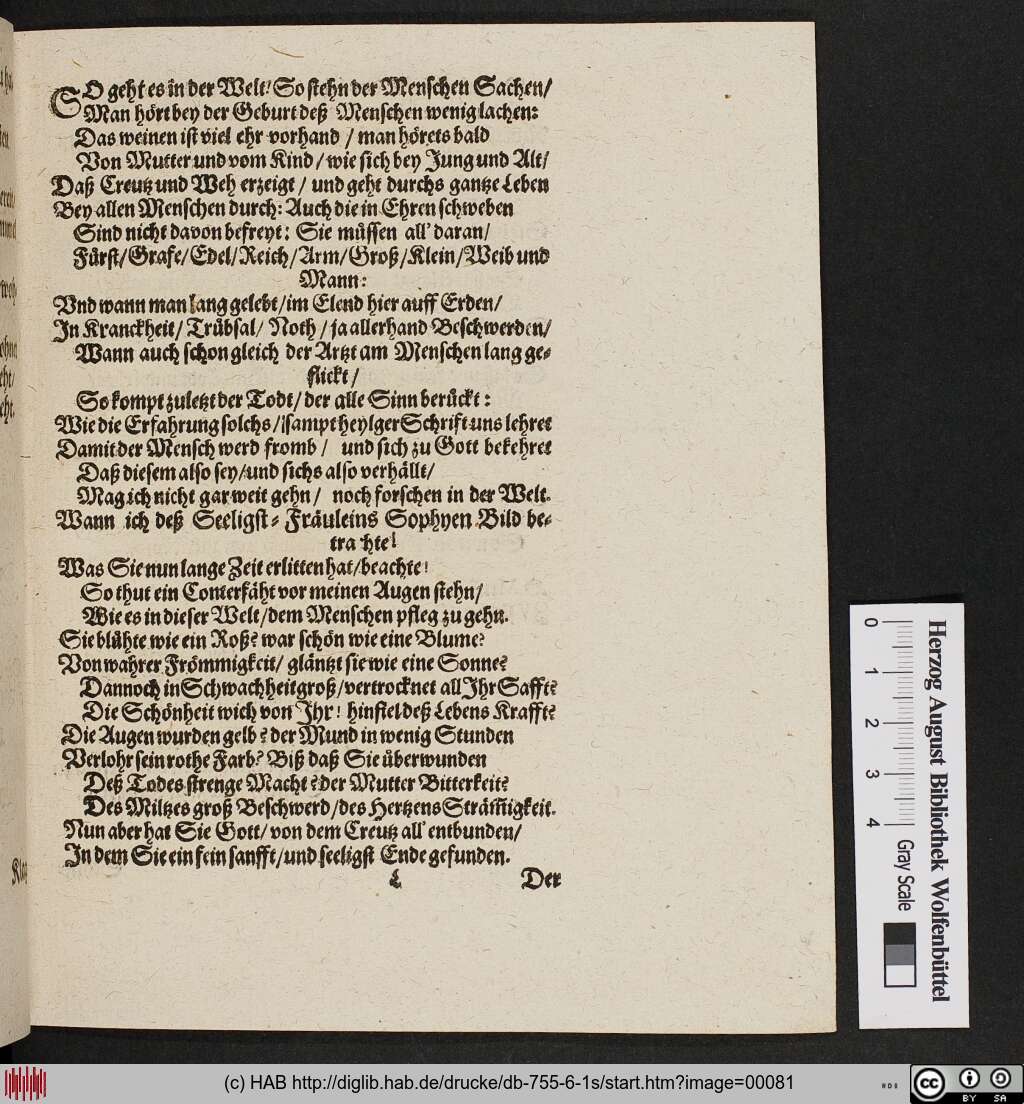 SO geht es in der Welt! So stehn der Menschen Sachen/
Man hört bey der Geburt deß Menschen wenig lachen:
Das weinen ist viel ehr vorhand / man hörets bald
Von Mutter und vom Kind / wie sich bey Jung und Alt/
Daß Creutz und Weh erzeigt / und geht durchs gantze Leben
Bey allen Menschen durch: Auch die in Ehren schweben
Sind nicht davon befreyt: Sie müssen all' daran/
Fürst/Grafe/Edel/Reich/Arm/Groß/Klein/Weib und
Mann:
Vnd wann man lang gelebt/im Elend hier auff Erden/
In Kranckheit/ Trübsal/ Noth / ja allerhand Beschwerden/
Wann auch schon gleich der Artzt am Menschen lang ge-
flickt /
So kompt zuletzt der Todt/ der alle Sinn berückt:
Wie die Erfahrung solchs/ sampt heylger Schrift uns lehret
Damit der Mensch werd fromb / und sich zu Gott bekehret
Daß diesem also sey/und sichs also verhällt/
Mag ich nicht gar weit gehn / noch forschen in der Welt.
Wann ich deß Seeligst-Fräuleins Sophyen Bild be-
trachte!
Was Sie nun lange Zeit erlitten hat/beachte!
So thut ein Conterfäht vor meinen Augen stehn/
Wie es in dieser Welt/dem Menschen pfleg zu gehn.
Sie blühte wie ein Roß? war schön wie eine Blume?
Von wahrer Frömmigkeit/ gläntzt sie wie eine Sonne?
Dannoch in Schwachheit groß/vertrocknet all Ihr Safft?
Die Schönheit wich von Ihr! hinfiel deß Lebens Krafft?
Die Augen wurden gelb? der Mund in wenig Stunden
Verlohr sein rothe Farb? Biß daß Sie überwunden
Deß Todes strenge Macht? der Mutter Bitterkeit?
Des Miltzes groß Beschwerd/des Hertzens Strämigkeit.
Nun aber hat Sie Gott/ von dem Creutz all' entbunden/
In dem Sie ein fein sanfft/und seeligst Ende gefunden.
L Der
0 1 2 3 4
Herzog August Bibliothek Wolfenbüttel
Gray Scale
(c) HAB http://diglib.hab.de/drucke/db-755-6-1s/start.htm?image=00081
cc BY SA